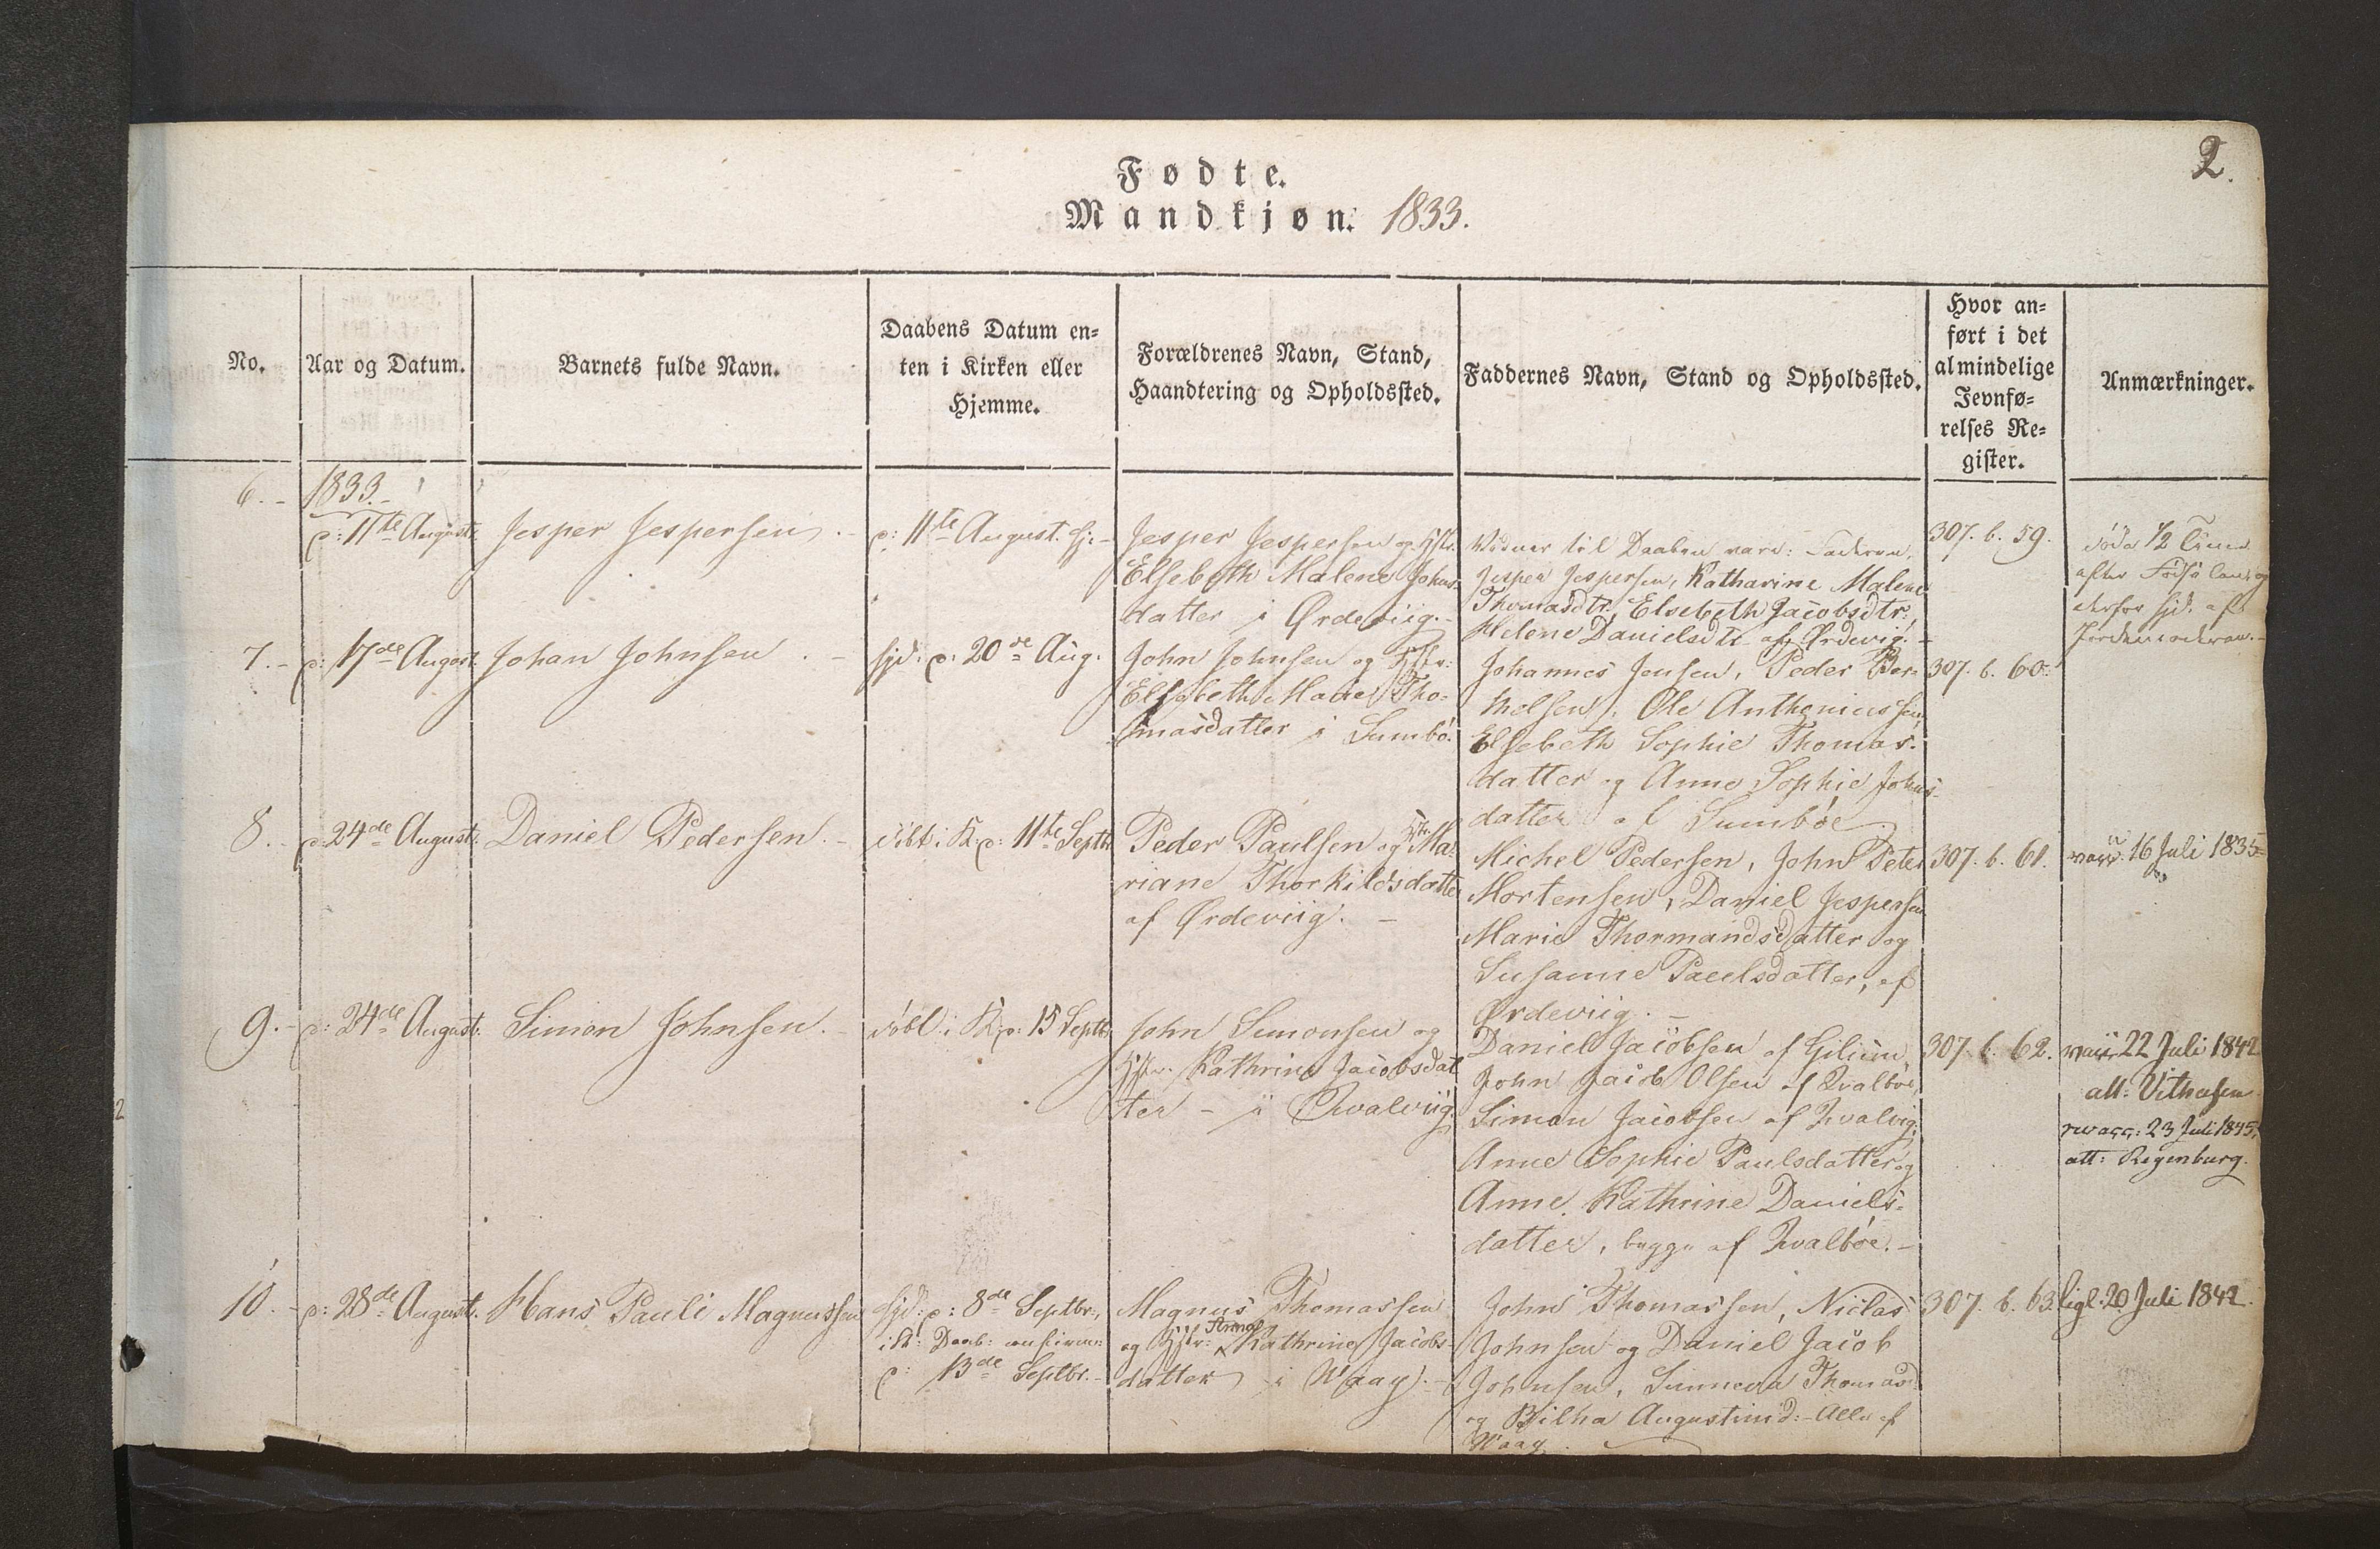 2.
Fødte.
Mandkjøn. 1833.
No.
Aar og Datum.
Barnets fulde Navn.
Daabens Datum en-
ten i Kirken eller
Hjemme.
Forældrenes Navn, Stand,
Haandtering og Opholdssted.
Faddernes Navn, Stand og Opholdssted.
Hvor an-
ført i det
almindelige
Jevnfø-
relses Re-
gister.
Anmærkninger.
6.-
1833.-
d: 11te August.
Jesper Jespersen.
d: 11te August. Hj:-
Jesper Jespersen og Hstr.
Elsebeth Malene Johns-
datter i Ørdeviig.-
Vidner til Daaben vare: Faderen,
Jesper Jespersen, Katharine Malene
Thomasdtr, Elsebeth Jacobsdtr:,
Helene Danielsdtr af Ørdevig.-
307. b. 59.
døde 1/2 Time
efter Fødselen og
derfor hjd. af
Jordemoderen.-
7.-
d: 17de August.
Johan Johnsen.-
hjd: d: 20de Aug.
John Johnsen og Hstr:
Elsebeth Tho-
masdatter i Sumbö.
Johannes Jensen, Peder
Ole Antheniussen
Elsebeth Sophie Thomas-
datter og Anne Sophie Johns-
datter af Sumböe.
307. b. 60.
8.-
d: 24de August.
Daniel Pedersen.-
döbt i K. d: 11te Septbr
Peder Paulsen og Hstr. Ma-
riane Thorkildsdatter
af Ørdeviig.-
Michel Pedersen, John Peter
Mortensen, Daniel Jespersen
Marie Thormandsdatter og
Susanne Paulsdatter, af
Ørdeviig.-
307. b. 61.
vacc: 16 Juli 1835
9.-
d: 24de August.
Simon Johnsen.-
döbt i K. d: 15 Septbr
John Simonsen og
Hstr. Kathrine Jacobsdat
ter - i Qvalviig.
Daniel Jacobsen af
John Jacob Olsen af Qvalböe,
Simon Jacobsen af Qvalvig.
Anne Sophie Paulsdatter og
Anne Kathrine Daniels-
datter, begge af Qvalböe.-
307. b. 62.
vacc 22 Juli 1842
att:
revacc: 23 Juli 1845,
att: Regenburg.
10.-
d: 28de August.
Hans Pauli Magnussen
hjd: d: 8de Septbr.,
i K: Daab: confirm:
d: 13de Septbr.-
Magnus Thomassen
og Hstr: Anna Kathrine Jacobs-
datter i Waag.-
John Thomassen, Niclas
Johnsen og Daniel Jacob
Johnsen, Sunneva Thomasd:
og Bilha Augustinid:- Alle af
Waag.
307. b. 63.
ligl. 20 Juli 1842.